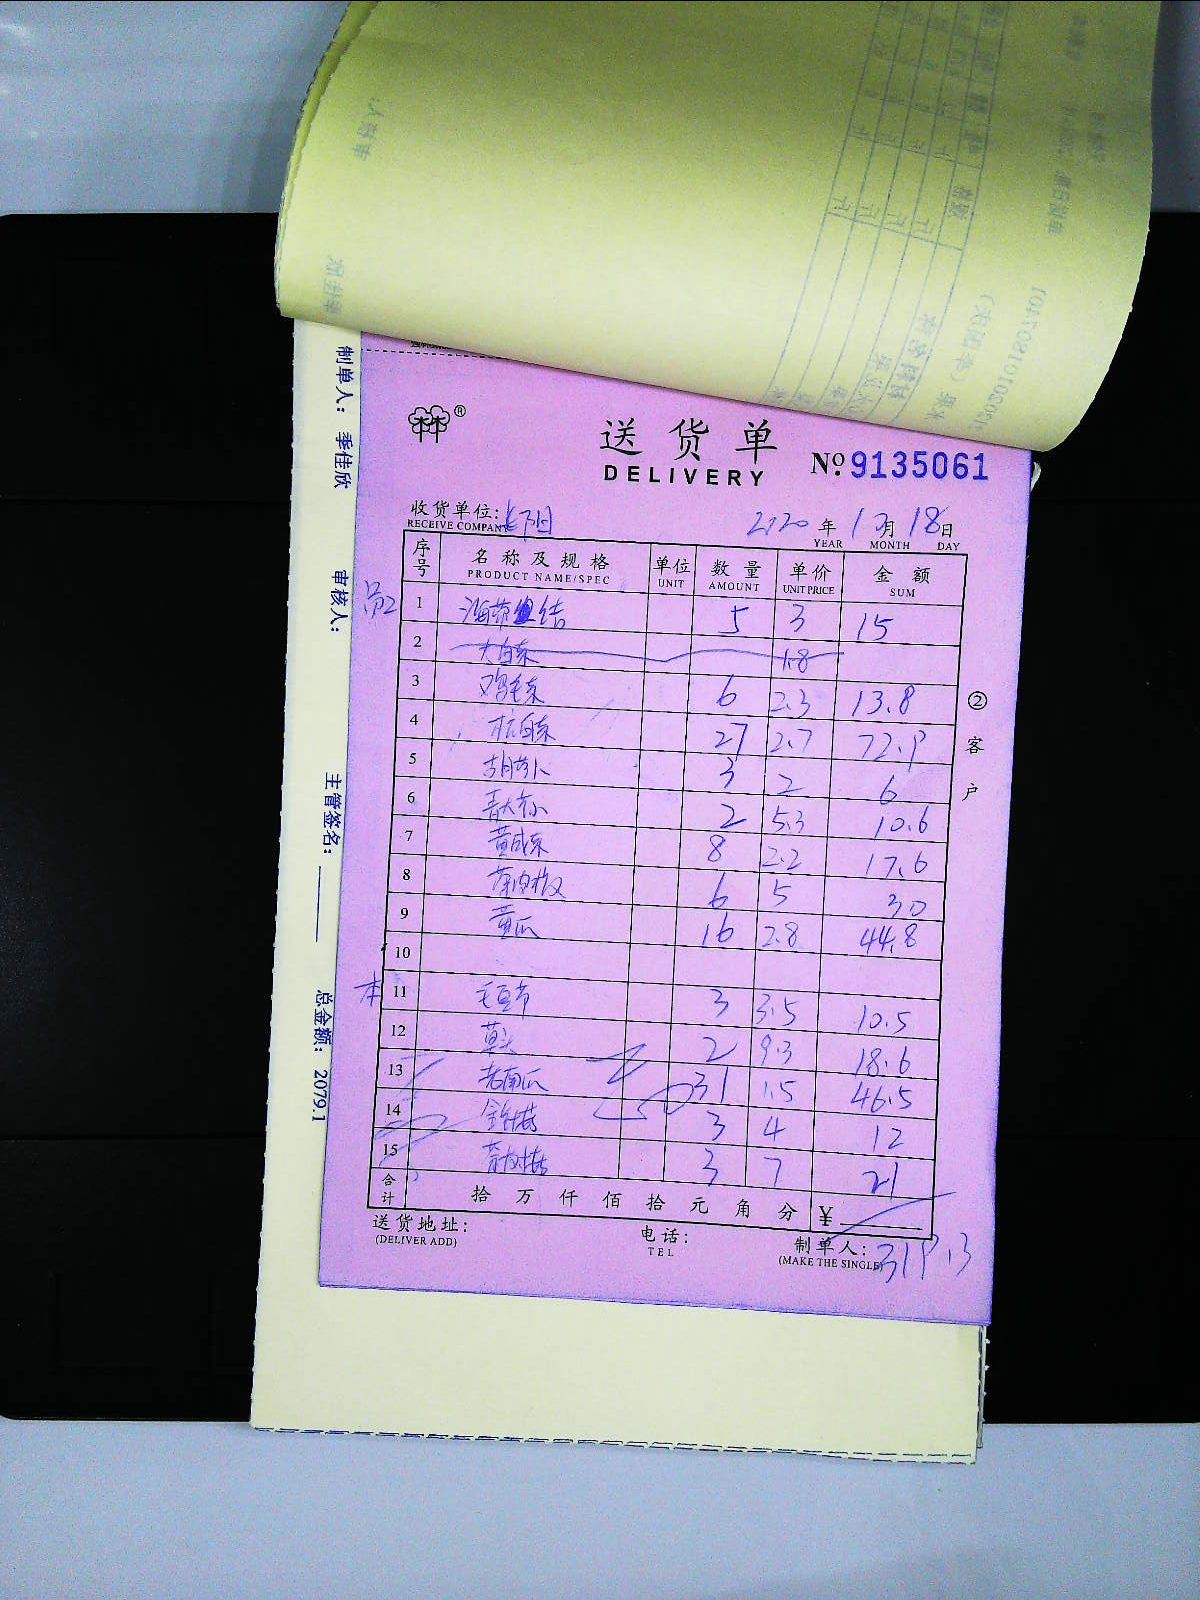 送货单
DELIVERY
№ 9135061
收货单位:
RECEIVE COMPANY
2020 年 10 月 18 日
YEAR MONTH DAY
序号 名称及规格 单位 数量 单价 金额
PRODUCT NAME/SPEC UNIT AMOUNT UNIT PRICE SUM
1 海带结 5 3 15
2 大白菜 1.8
3 鸡毛菜 6 2.3 13.8
4 杭白菜 27 2.7 72.9
5 胡萝卜 3 2 6
6 2 5.3 10.6
7 黄咸菜 8 2.2 17.6
8 6 5 30
9 黄瓜 16 2.8 44.8
10
本 11 毛豆节 3 3.5 10.5
12 草头 2 9.3 18.6
13 老南瓜 31 1.5 46.5
14 金针菇 3 4 12
15 3 7 21
合计 拾 万 仟 佰 拾 元 角 分 ¥
319.3
送货地址:
(DELIVER ADD)
电话:
TEL
制单人:
(MAKE THE SINGLE)
②客户
制单人: 季佳欣
审核人:
主管签名:
总金额: 2079.1